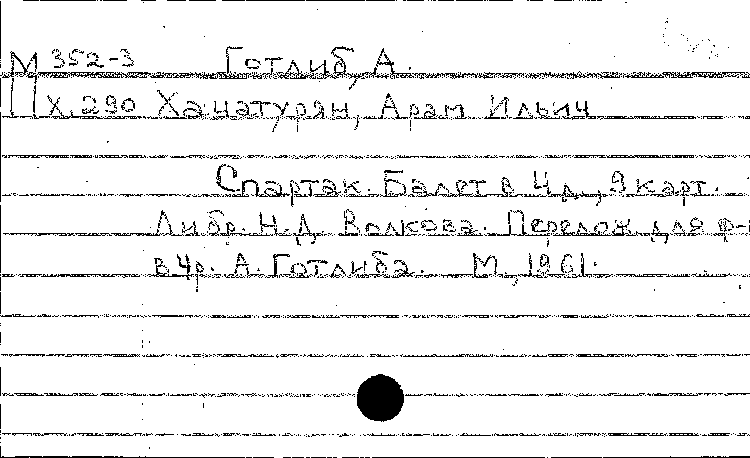 М 352-3 Готлиб, А.
Х.290 Хачатурян, Арам Ильич
Спартак. Балет в 4 д., 9 карт.
Либр. Н.Д. Волкова. Перелож. для ф-
в 4 р. А. Готлиба. М., 1961.